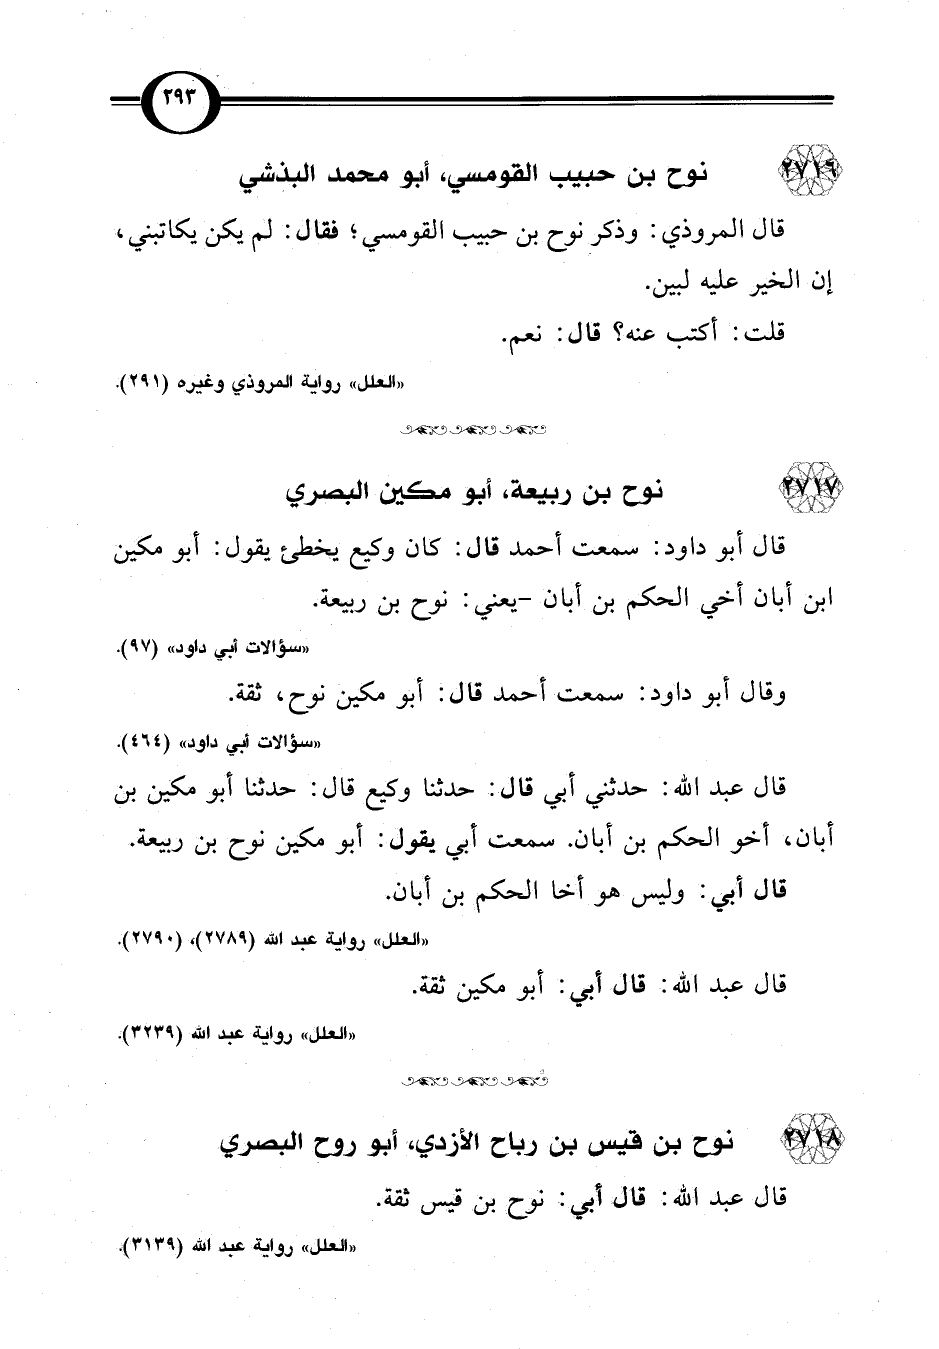 ٢٩٣
٢٧١٦ نوح بن حبيب القومسي، أبو محمد البذشي
قال المروذي: وذكر نوح بن حبيب القومسي؛ فقال: لم يكن يكاتبني،
إن الخير عليه لبين.
قلت: أكتب عنه؟ قال: نعم.
«العلل» رواية المروذي وغيره (٢٩١).
٢٧١٧ نوح بن ربيعة، أبو مكين البصري
قال أبو داود: سمعت أحمد قال: كان وكيع يخطئ يقول: أبو مكين
ابن أبان أخي الحكم بن أبان -يعني: نوح بن ربيعة.
«سؤالات أبي داود» (٩٧).
وقال أبو داود: سمعت أحمد قال: أبو مكين نوح، ثقة.
«سؤالات أبي داود» (٤٦٤).
قال عبد الله: حدثني أبي قال: حدثنا وكيع قال: حدثنا أبو مكين بن
أبان، أخو الحكم بن أبان. سمعت أبي يقول: أبو مكين نوح بن ربيعة.
قال أبي: وليس هو أخا الحكم بن أبان.
«العلل» رواية عبد الله (٢٧٨٩)، (٢٧٩٠).
قال عبد الله: قال أبي: أبو مكين ثقة.
«العلل» رواية عبد الله (٣٢٣٩).
٢٧١٨ نوح بن قيس بن رباح الأزدي، أبو روح البصري
قال عبد الله: قال أبي: نوح بن قيس ثقة.
«العلل» رواية عبد الله (٣١٣٩).